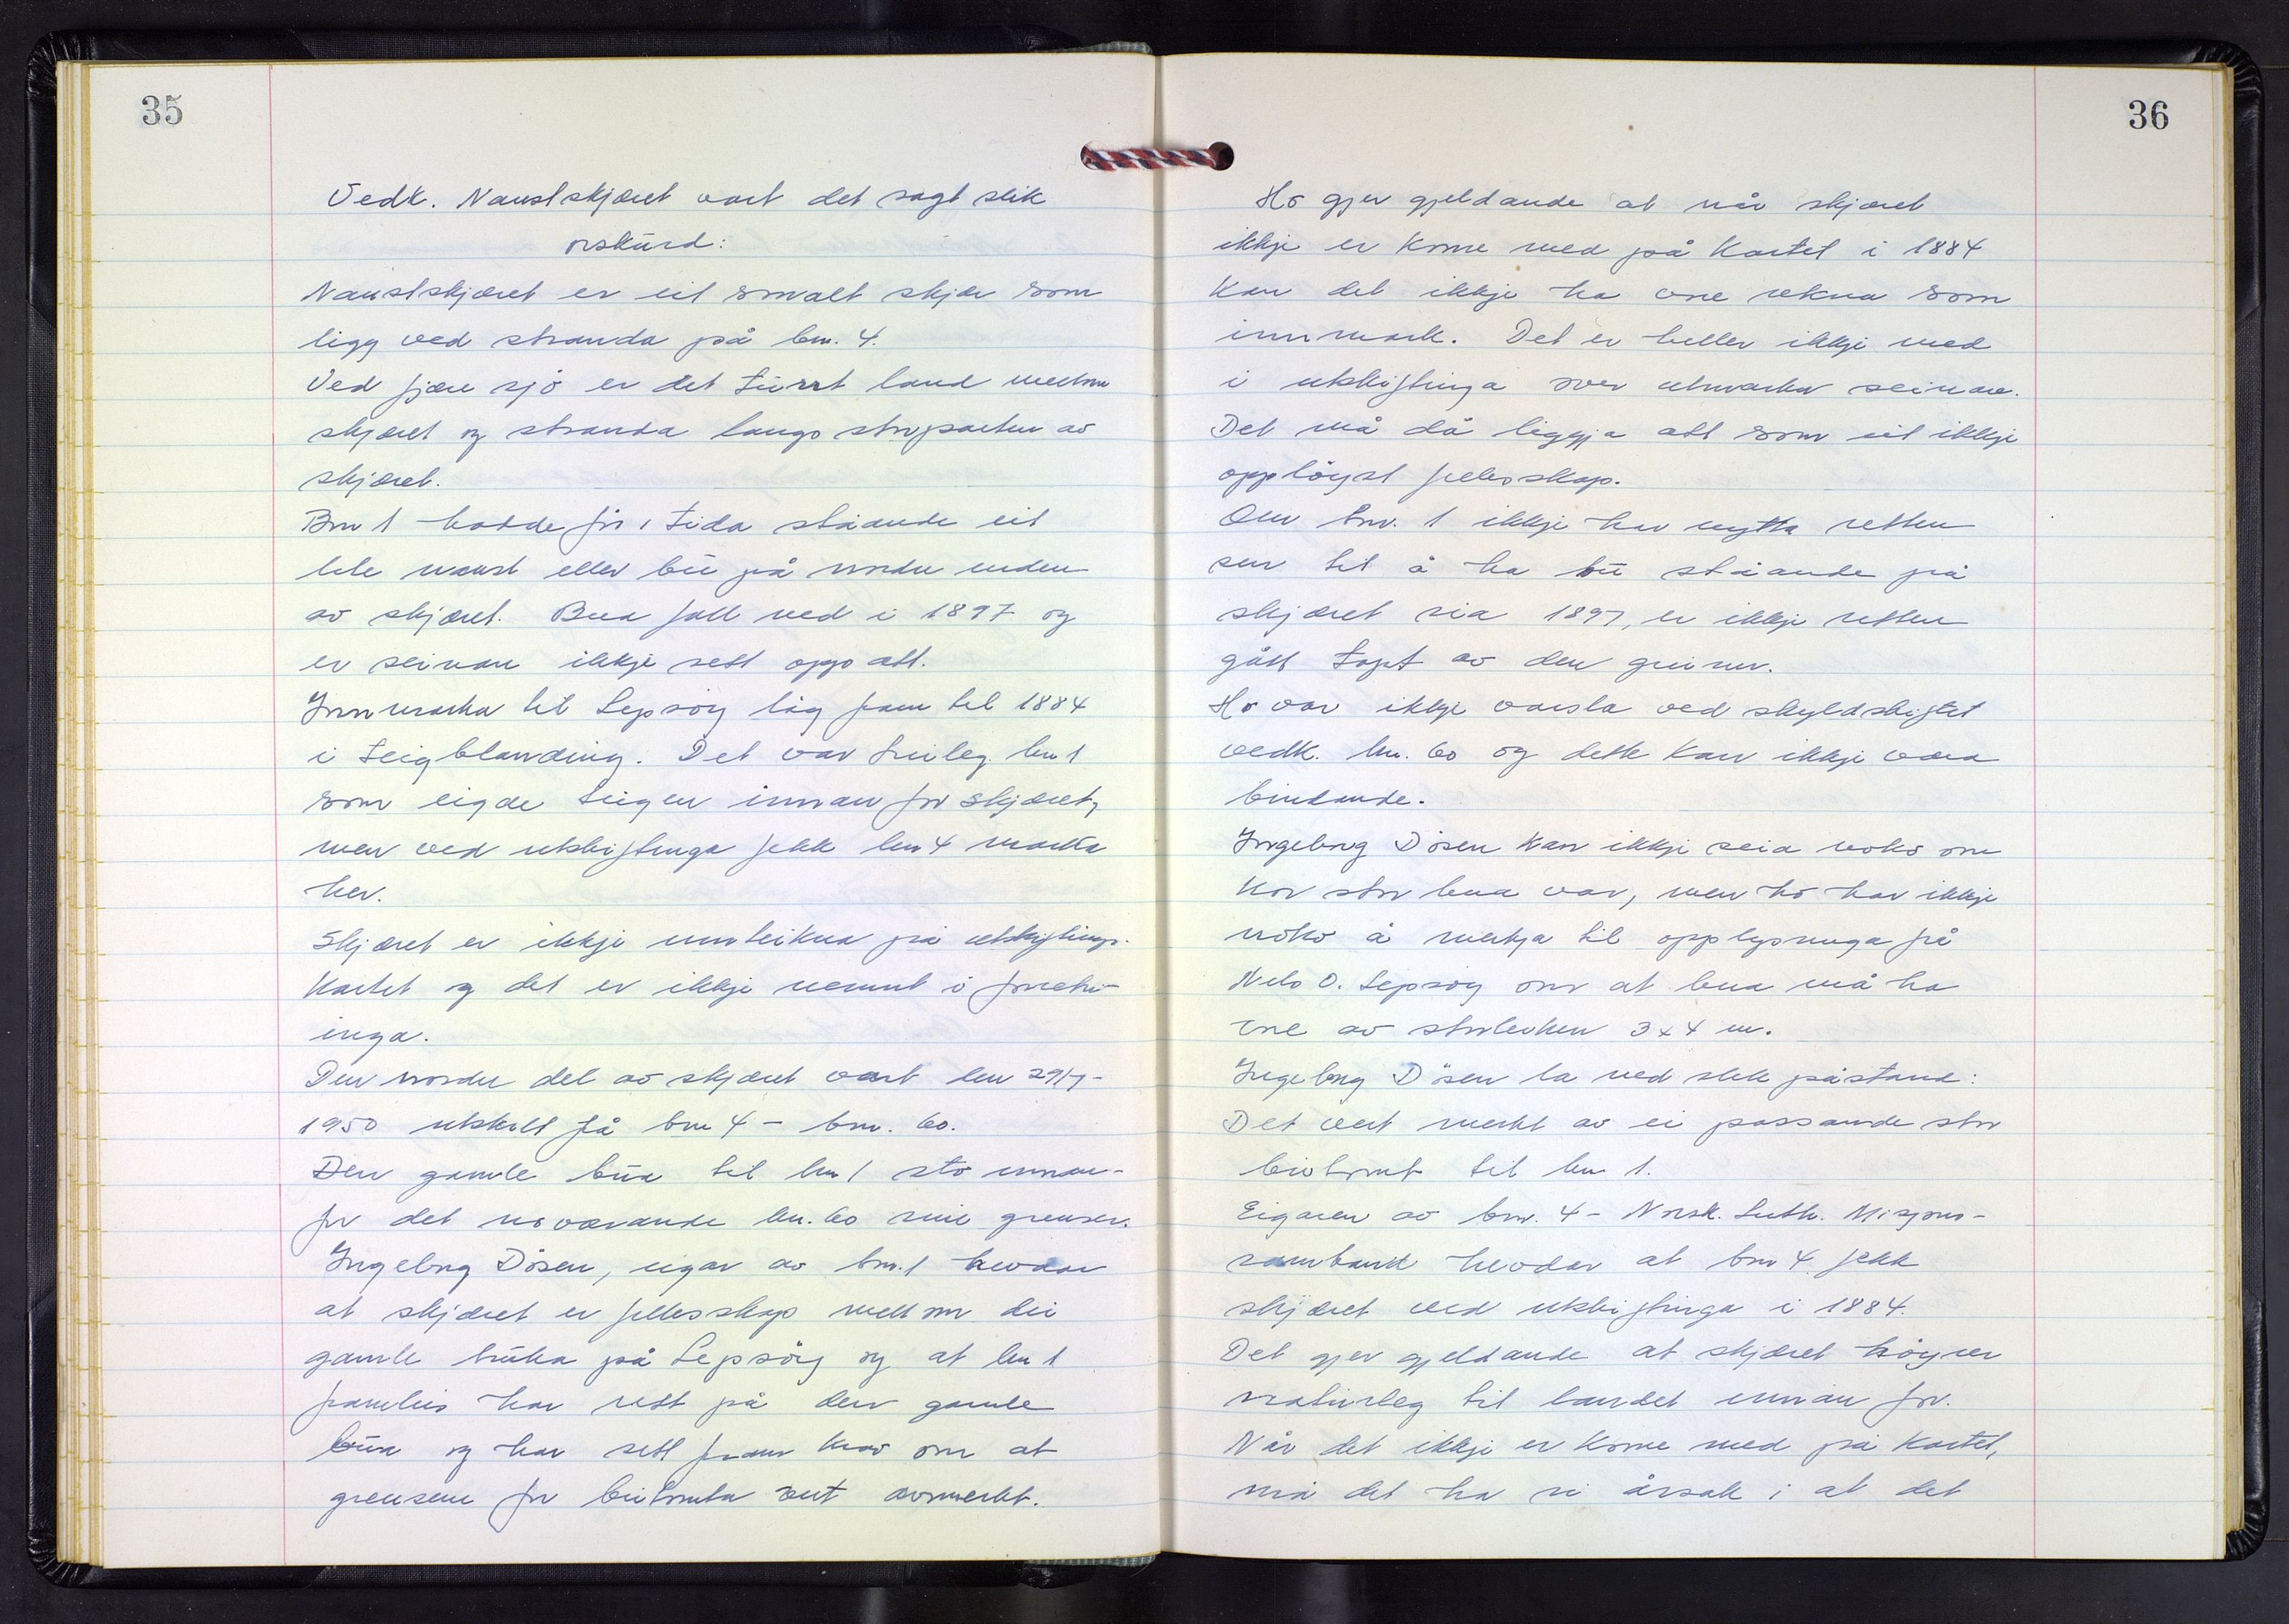 35
Vedk. Naustskjæret vart det sagt slik
orskurd:
Naustskjæret er eit smalt skjær som
ligg ved stranda på bnr. 4.
Ved fjære sjø er det turrt land mellom
skjæret og stranda langs storparten av
skjæret.
Bnr 1 hadde før i tida ståande eit
lite naust eller bu på nordre enden
av skjæret. Bua fall ned i 1897 og
er seinare ikkje sett opp att.
Innmarka til Lepsøy låg fram til 1884
i teigblanding. Det var truleg bnr 1
som eigde teigen innan for skjæret,
men ved utskiftinga fekk bnr 4 marka
her.
Skjæret er ikkje innteikna på utskiftings-
kartet og det er ikkje nemnt i forretn-
inga.
Den nordre del av skjæret vart den 29/7-
1950 utskilt frå bnr 4 - bnr. 60.
Den gamle bua til bnr 1 sto innan-
for det noværande bnr. 60 sine grenser.
Ingeborg Døsen, eigar av bnr. 1 hevdar
at skjæret er fellesskap mellom dei
gamle bruka på Lepsøy og at bnr 1
framleis har rett på den gamle
bua og har sett fram krav om at
grensene for butomta vert avmerkt.
36
Ho gjer gjeldande at når skjæret
ikkje er kome med på kartet i 1884
kan det ikkje ha vore rekna som
innmark. Det er heller ikkje med
i utskiftinga over utmarka seinare.
Det må då liggja att som eit ikkje
oppløyst fellesskap.
Om bnr. 1 ikkje har nytta retten
sin til å ha bu ståande på
skjæret sia 1897, er ikkje retten
gått tapt av den grunn.
Ho var ikkje varsla ved skyldskiftet
vedk. bnr. 60 og dette kan ikkje vera
bindande.
Ingeborg Døsen kan ikkje seia noko om
kor stor bua var, men ho har ikkje
noko å merkja til opplysninga frå
Nils O. Lepsøy om at bua må ha
vore av storleiken 3x4 m.
Ingeborg Døsen la ned slik påstand:
Det vert merkt av ei passande stor
butomt til bnr 1.
Eigaren av bnr. 4 - Norsk. Luth. Misjons-
samband hevdar at bnr 4 fekk
skjæret ved utskiftinga i 1884.
Det gjer gjeldande at skjæret høyrer
naturleg til landet innan for.
Når det ikkje er kome med på kartet,
må det ha si årsak i at det